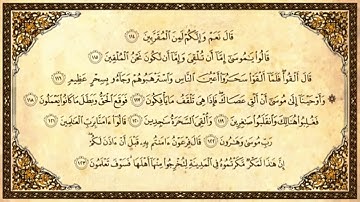 قَالَ نَعَمْ وَإِنَّكُمْ لَمِنَ الْمُقَرَّبِينَ ﴿١١٤﴾
قَالُوا يَا مُوسَىٰ إِمَّا أَن تُلْقِيَ وَإِمَّا أَن نَّكُونَ نَحْنُ الْمُلْقِينَ ﴿١١٥﴾
قَالَ أَلْقُوا فَلَمَّا أَلْقَوْا سَحَرُوا أَعْيُنَ النَّاسِ وَاسْتَرْهَبُوهُمْ وَجَاءُو بِسِحْرٍ عَظِيمٍ ﴿١١٦﴾
وَأَوْحَيْنَا إِلَىٰ مُوسَىٰ أَنْ أَلْقِ عَصَاكَ فَإِذَا هِيَ تَلْقَفُ مَا يَأْفِكُونَ ﴿١١٧﴾ فَوَقَعَ الْحَقُّ وَبَطَلَ مَا كَانُوا يَعْمَلُونَ ﴿١١٨﴾
فَغُلِبُوا هُنَالِكَ وَانقَلَبُوا صَاغِرِينَ ﴿١١٩﴾ وَأُلْقِيَ السَّحَرَةُ سَاجِدِينَ ﴿١٢٠﴾ قَالُوا آمَنَّا بِرَبِّ الْعَالَمِينَ ﴿١٢١﴾
رَبِّ مُوسَىٰ وَهَارُونَ ﴿١٢٢﴾ قَالَ فِرْعَوْنُ آمَنتُم بِهِ قَبْلَ أَنْ آذَنَ لَكُمْ
إِنَّ هَٰذَا لَمَكْرٌ مَّكَرْتُمُوهُ فِي الْمَدِينَةِ لِتُخْرِجُوا مِنْهَا أَهْلَهَا فَسَوْفَ تَعْلَمُونَ ﴿١٢٣﴾